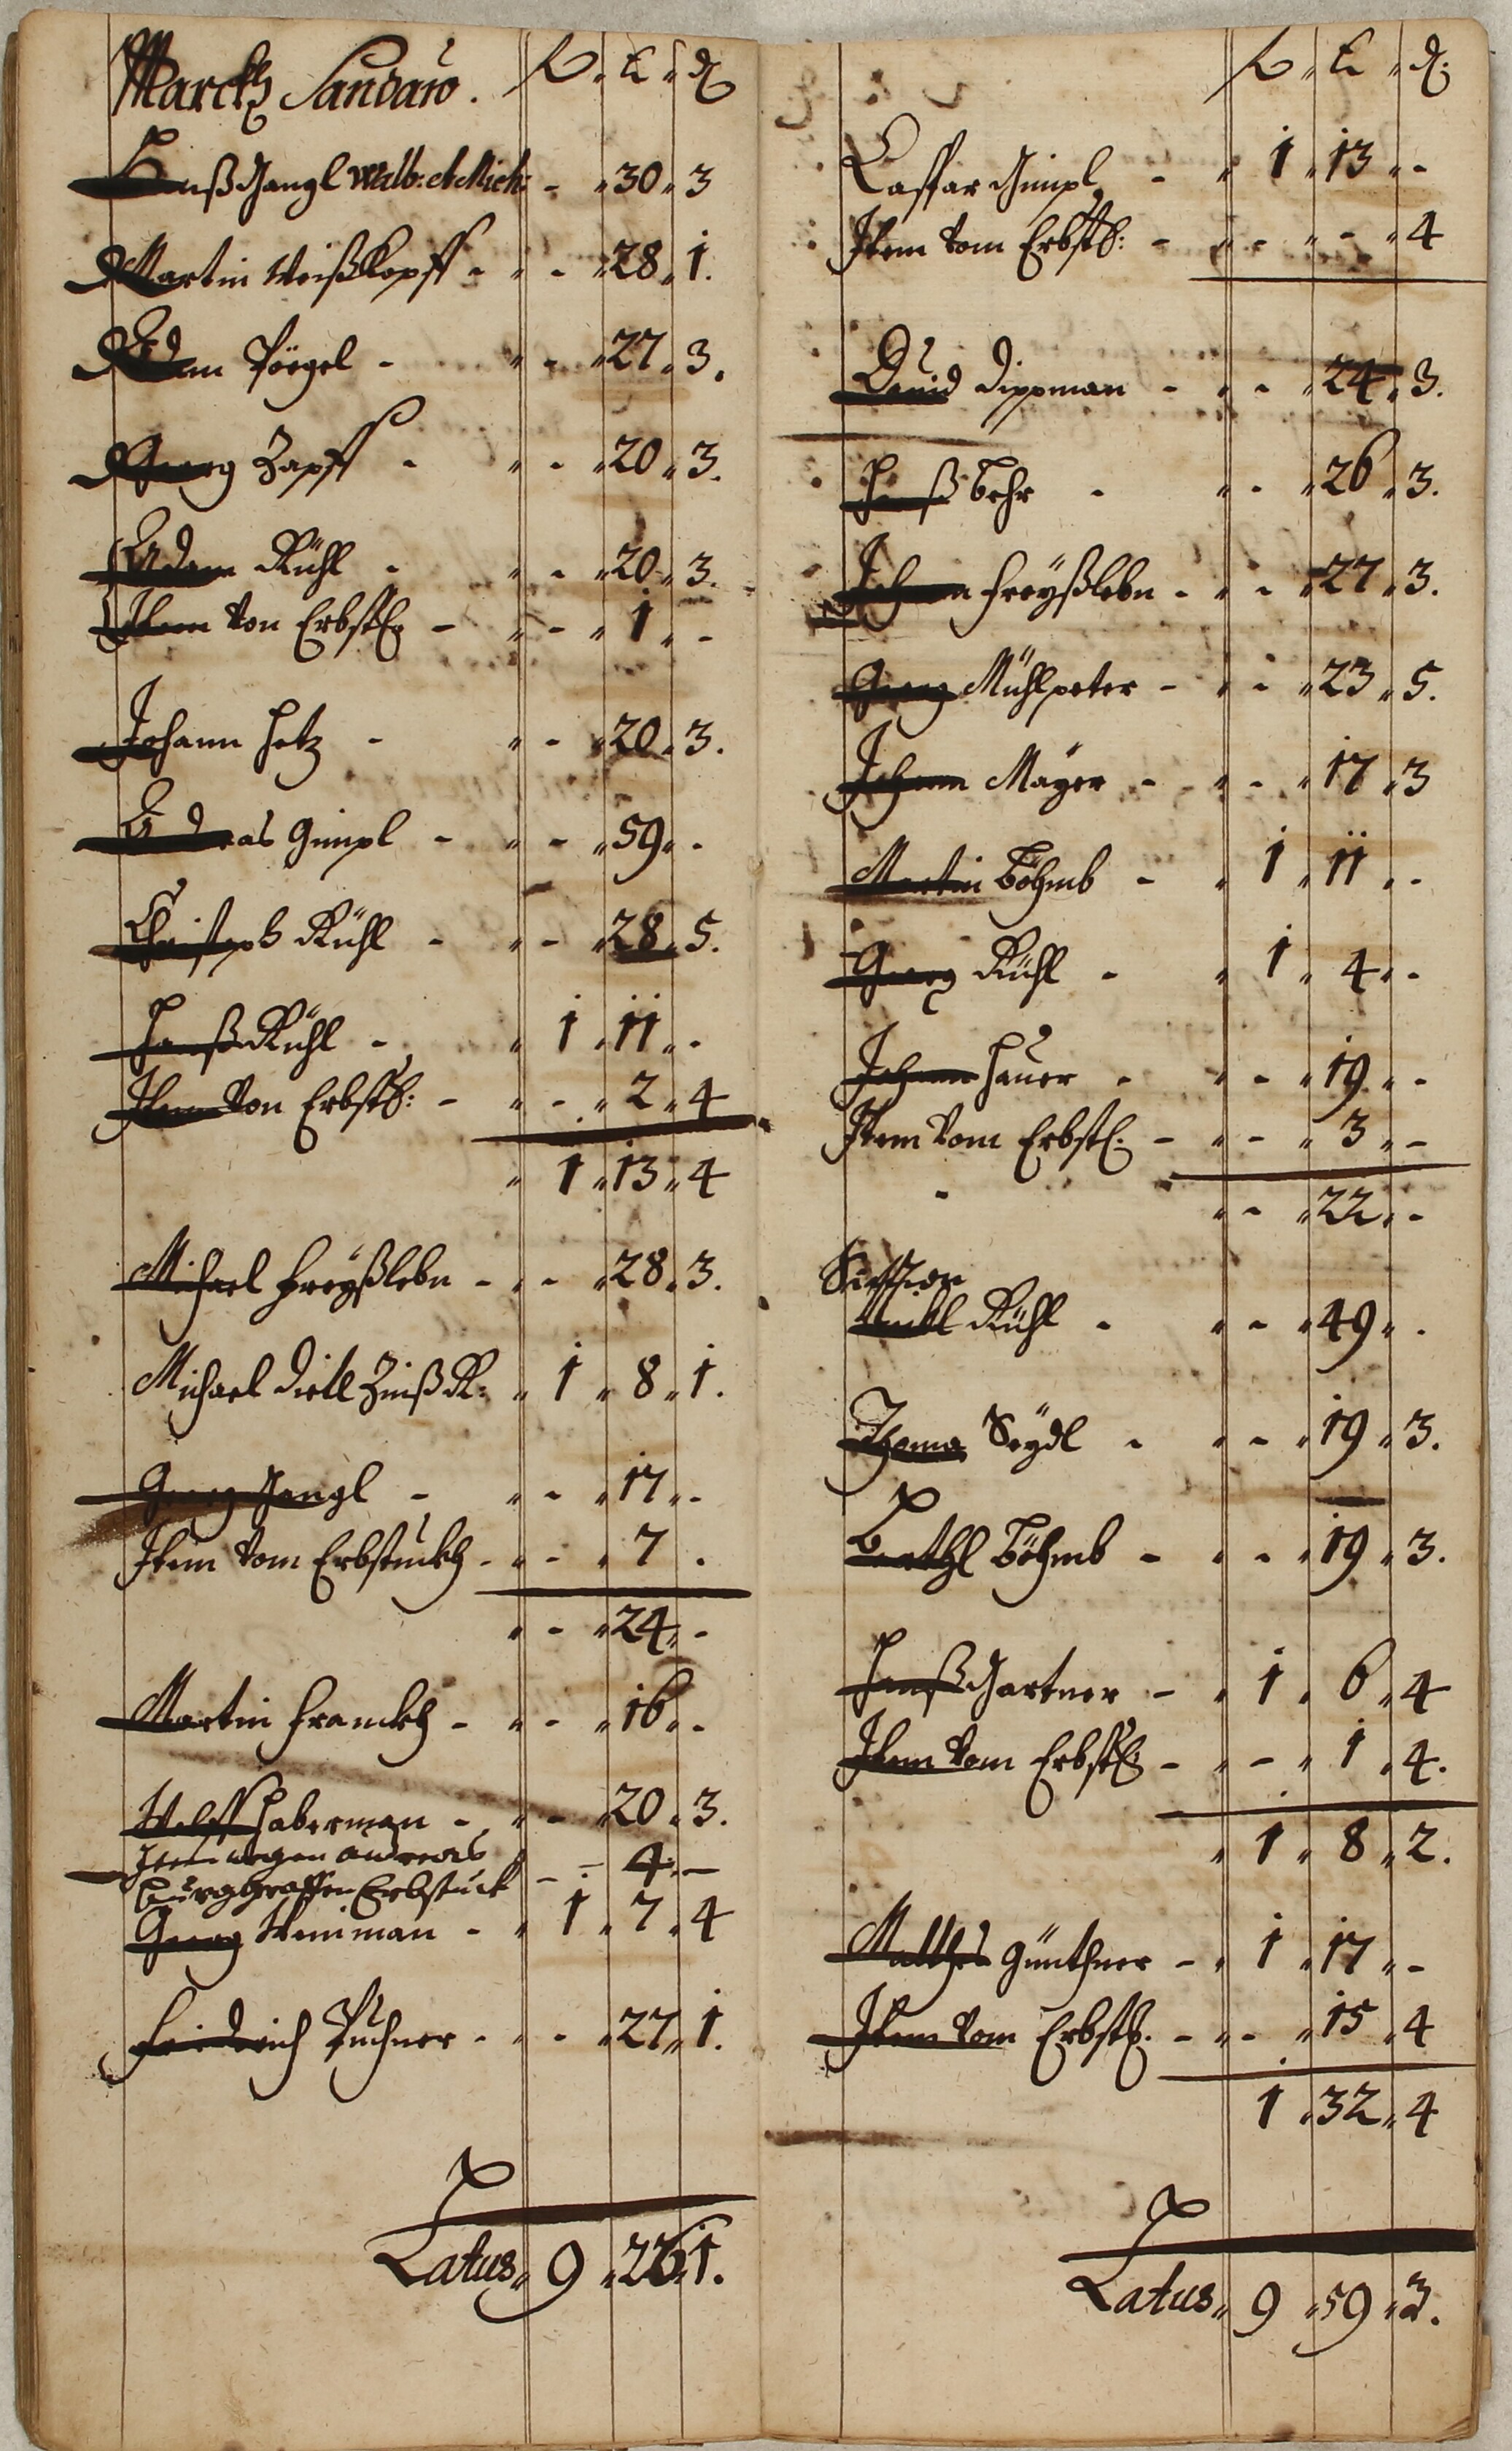 Marckh Sandaw. fl. kr. d
Hanß Gangl Walb: et Mich: - 30 3
Martin Weißkopff - - 28 1.
Adam Pörgel - - 27 3.
Georg Zapff - - 20 3.
Adam Rühl - - 20 3.
Item von Erbst: - - 1 -
Johann Hetz - - 20 3.
Andreas Gimpl - - 59 -
Christoph Rühl - - 28 5.
Hanß Rühl - 1 11 -
Item von Erbst: - - 2 4
1 13 4
Michael Freyßlebn - - 28 3.
Michael Dietl Zinß R: 1 8 1.
Georg Gangl - - 17 -
Item vom Erbstuckh - - 7 .
- 24 -
Martin Franckh - - 16 -
Wolff Haberman - - 20 3.
Item wegen Andreas
Burggraffen Erbstuck - - 4 -
Georg Weniman - 1 7 4
Friedrich Puchner - - 27 1.
Latus 9 26 1.
fl. kr. d.
Caspar Gimpl - 1 13 -
Item vom Erbst: - - - 4
David Dippman - - 24 3.
Hanß Behr - - 26 3.
Johann Freyßlebn - - 27 3.
Georg Mühlpeter - - 23 5.
Johann Mayer - - 17 3
Martin Böhmb - 1 11 -
Georg Rühl - 1 4 -
Johann Hauer - - 19 -
Item vom Erbst: - - 3 -
- 22 -
Rühl - - 49 .
Thoma Seydl - - 19 3.
Barthl Böhmb - - 19 3.
Hanß Gartner - 1 6 4
Item vom Erbst: - - 1 4.
1 8 2.
Matthes Günthner - 1 17 -
Item vom Erbst: - - 15 4
1 32 4
Latus 9 59 3.